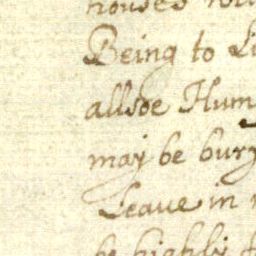 houses
Being to Li
allsoe Hum
may be bury
Leave in
be highly